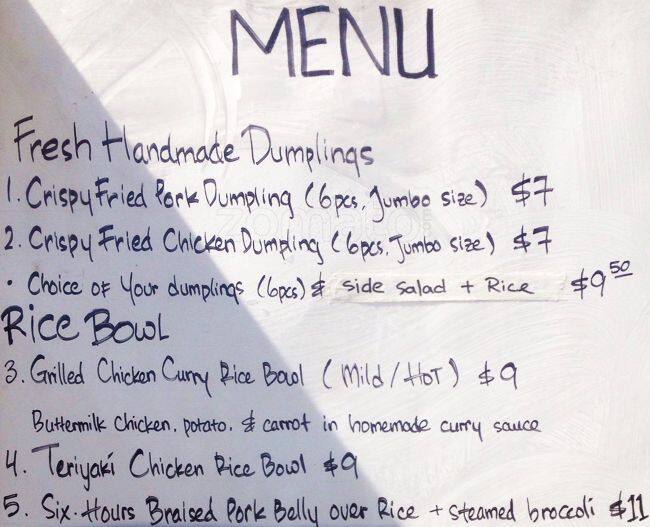 MENU
Fresh Handmade Dumplings
1. Crispy Fried Pork Dumpling (6pcs, Jumbo size) $7
2. Crispy Fried Chicken Dumpling (6pcs, Jumbo size) $7
• Choice of Your dumplings (6pcs) & side salad + Rice $9.50
Rice Bowl
3. Grilled Chicken Curry Rice Bowl (Mild / Hot) $9
Buttermilk chicken, potato, & carrot in homemade curry sauce
4. Teriyaki Chicken Rice Bowl $9
5. Six-Hours Braised Pork Belly over Rice + steamed broccoli $11